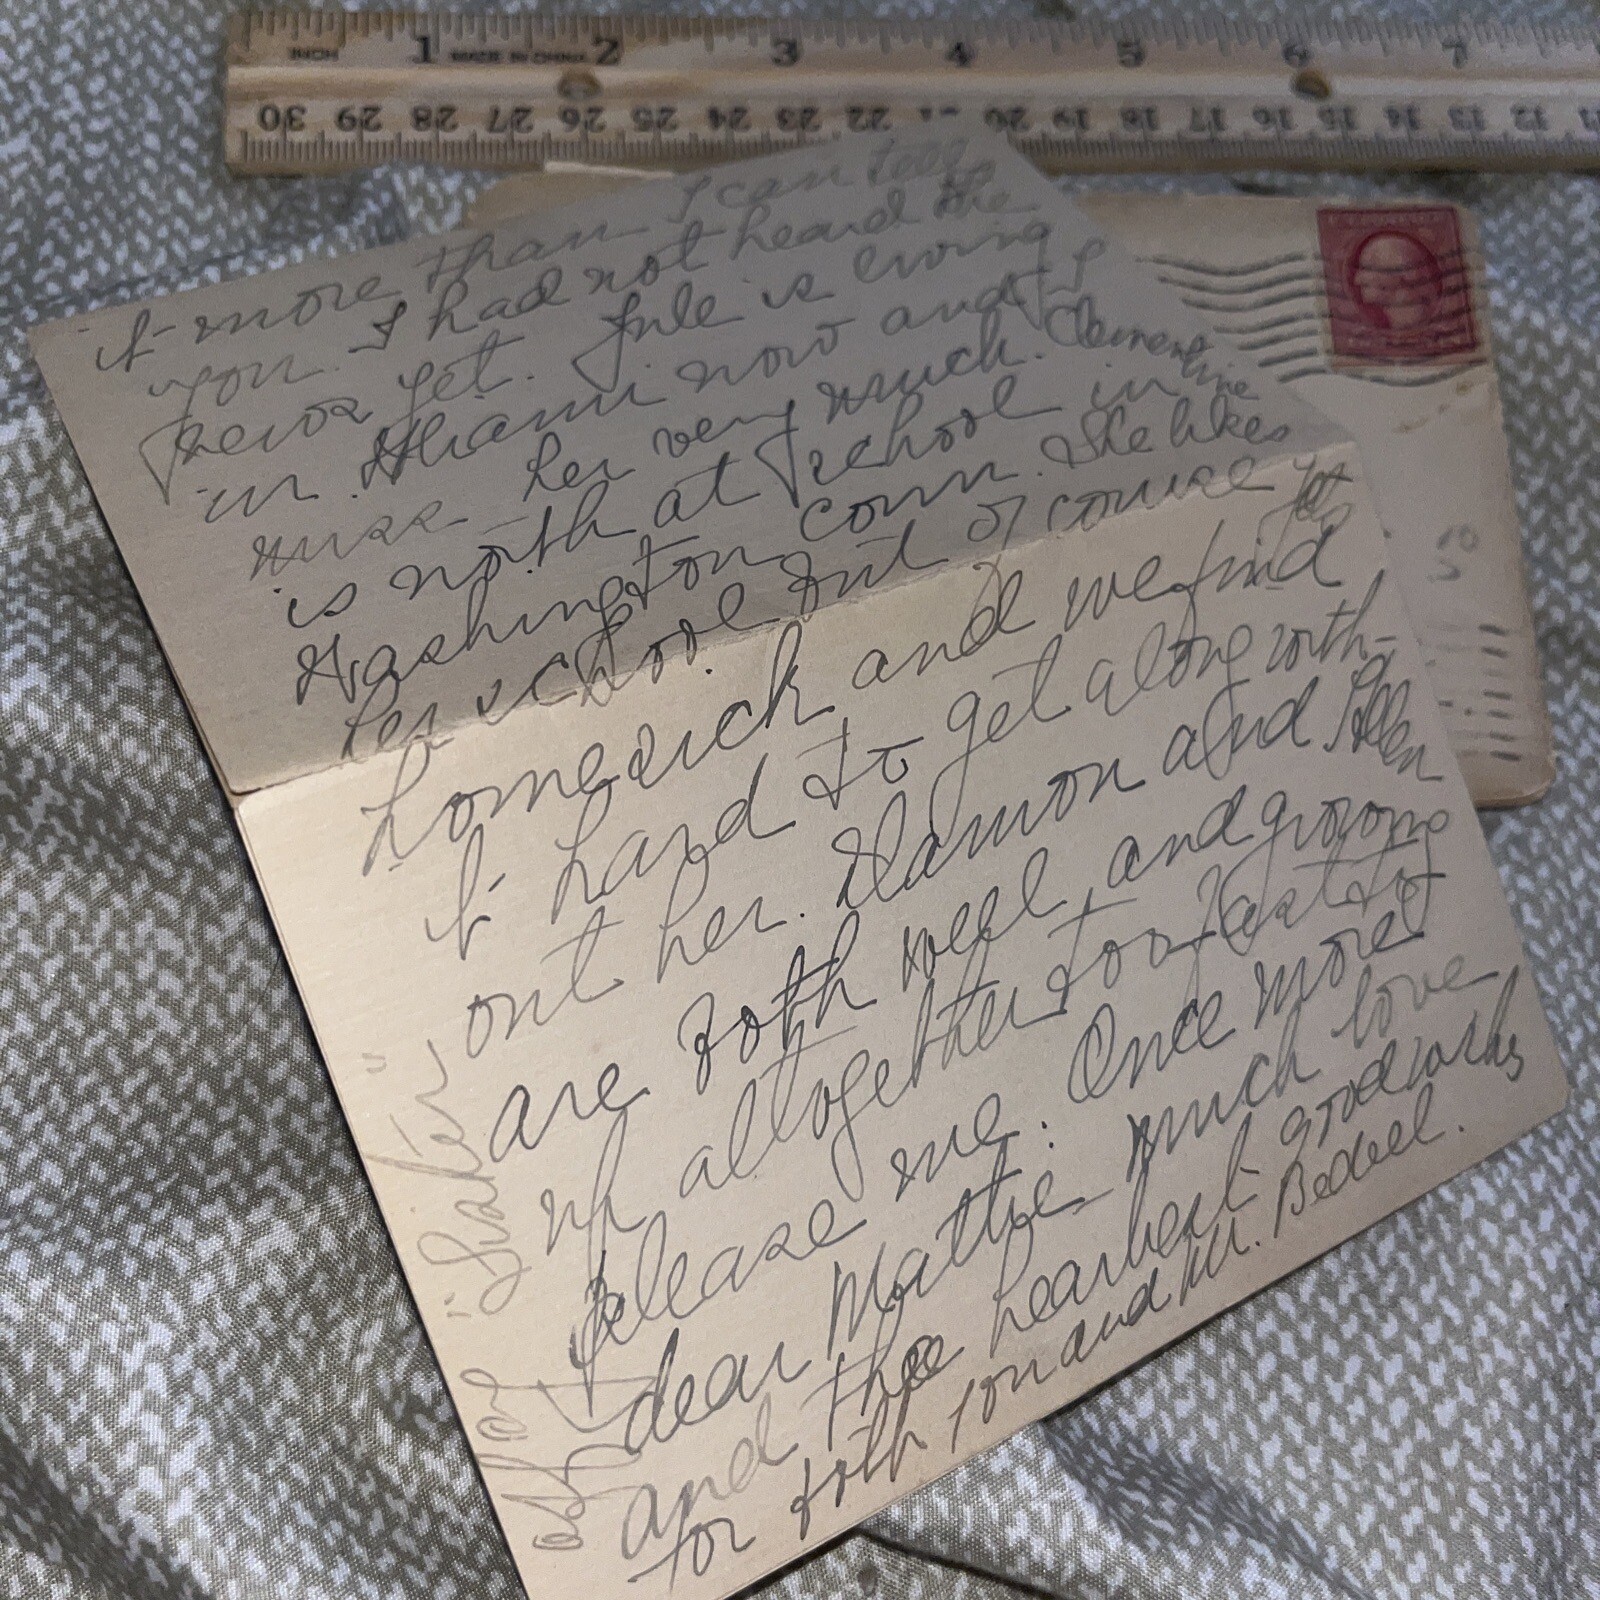 INCH 1 2 3 4 5 6 7
30 29 28 27 26 25 24 23 22 20 19 18 17 16 15 14 13 12 11
it more than I can tell
you. I had not heard the
news yet. Jule is living
in Miami now and I
miss her very much. Clementine
is north at school in
Washington Conn. She likes
her school but of course gets
homesick and we find
it hard to get along with-
out her. Damon and Allen
are both well and growing
up altogether too fast to
please me. Once more
dear Mattie much love
and the heartiest good wishes
for both you and Mr. Bedell.
"Sister"